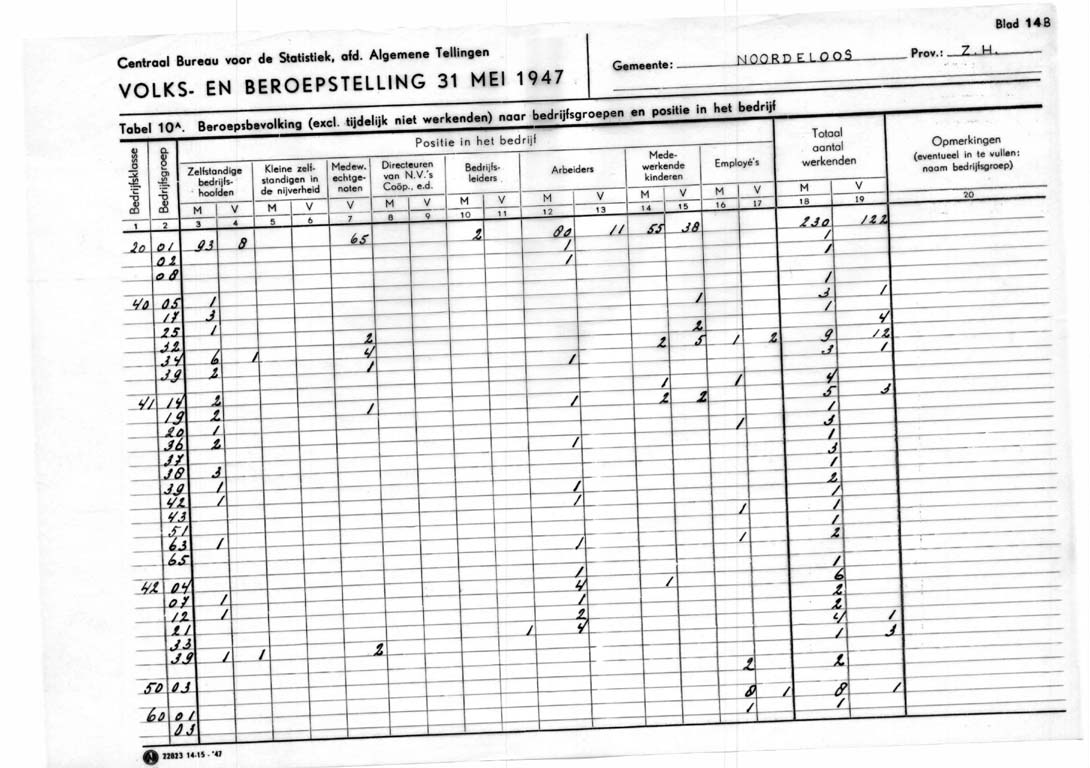 Blad 14B
Centraal Bureau voor de Statistiek, afd. Algemene Tellingen
VOLKS- EN BEROEPSTELLING 31 MEI 1947
Gemeente: NOORDELOOS Prov.: Z.H.
Tabel 10ᴬ. Beroepsbevolking (excl. tijdelijk niet werkenden) naar bedrijfsgroepen en positie in het bedrijf
Bedrijfsklasse
Bedrijfsgroep
Positie in het bedrijf
Zelfstandige bedrijfs-hoofden
Kleine zelf-standigen in de nijverheid
Medew. echtge-noten
Directeuren van N.V.'s Coöp., e.d.
Bedrijfs-leiders
Arbeiders
Mede-werkende kinderen
Employé's
Totaal aantal werkenden
Opmerkingen (eventueel in te vullen: naam bedrijfsgroep)
M V M V V M V M V M V M V M V M V
1 2 3 4 5 6 7 8 9 10 11 12 13 14 15 16 17 18 19 20
20 01 93 8 65 2 80 11 55 38 230 122
02 1 1
08 1 1
40 05 1 1
17 3 1 3 1
25 1 1
32 2 2 4
34 6 1 4 2 5 1 2 9 12
39 2 1 1 3 1
41 14 2 1 1 4
19 2 1 1 2 2 5 3
20 1 1
36 2 1 3
37 1 1
38 3 3
39 1 1
42 1 1 2
43 1 1
51 1 1
63 1 1
65 1 1 2
42 04 1 1
07 1 4 1 6
12 1 1 2
21 2 2
33 1 4 4 1
39 1 1 2 1 3
50 03 2 2
60 01 8 1 8 1
03 1 1
N 22823 14-15 - '47